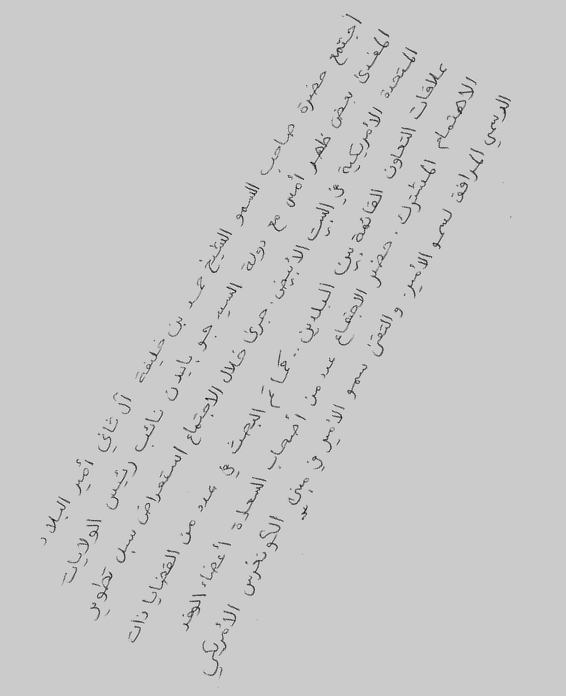 اجتمع حضرة صاحب السمو الشيخ حمد بن خليفة آل ثاني أمير البلاد
المفدى بعض ظهر أمس مع دولة السيد جو بايدن نائب رئيس الولايات
المتحدة الأمريكية في البيت الأبيض. جرى خلال الاجتماع استعراض سبل تطوير
علاقات التعاون القائمة بين البلدين.. كما تم البحث في عدد من القضايا ذات
الاهتمام المشترك. حضر الاجتماع عدد من أصحاب السعادة أعضاء الوفد
الرسمي المرافق لسمو الأمير. والتقى سمو الأمير في مبنى الكونغرس الأمريكي